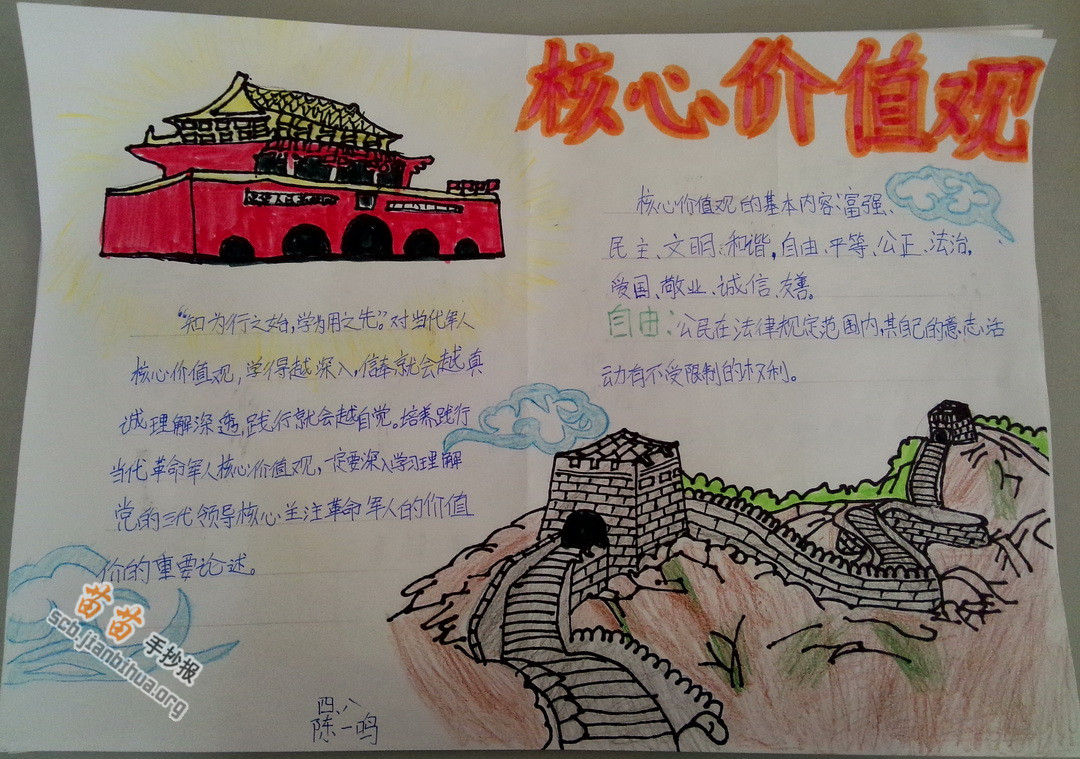 核心价值观
核心价值观的基本内容:富强、
民主、文明、和谐,自由、平等、公正、法治,
爱国、敬业、诚信、友善。
自由:公民在法律规定范围内,其自己的意志活
动有不受限制的权利。
“知为行之始,学为用之先。”对当代军人
核心价值观,学得越深入,信奉就会越真
诚理解深透,践行就会越自觉。培养践行
当代革命军人核心价值观,一定要深入学习理解
党的三代领导核心关注革命军人的价值
价的重要论述。
四、八
陈一鸣
苗苗
手抄报
scb.jianbihua.org